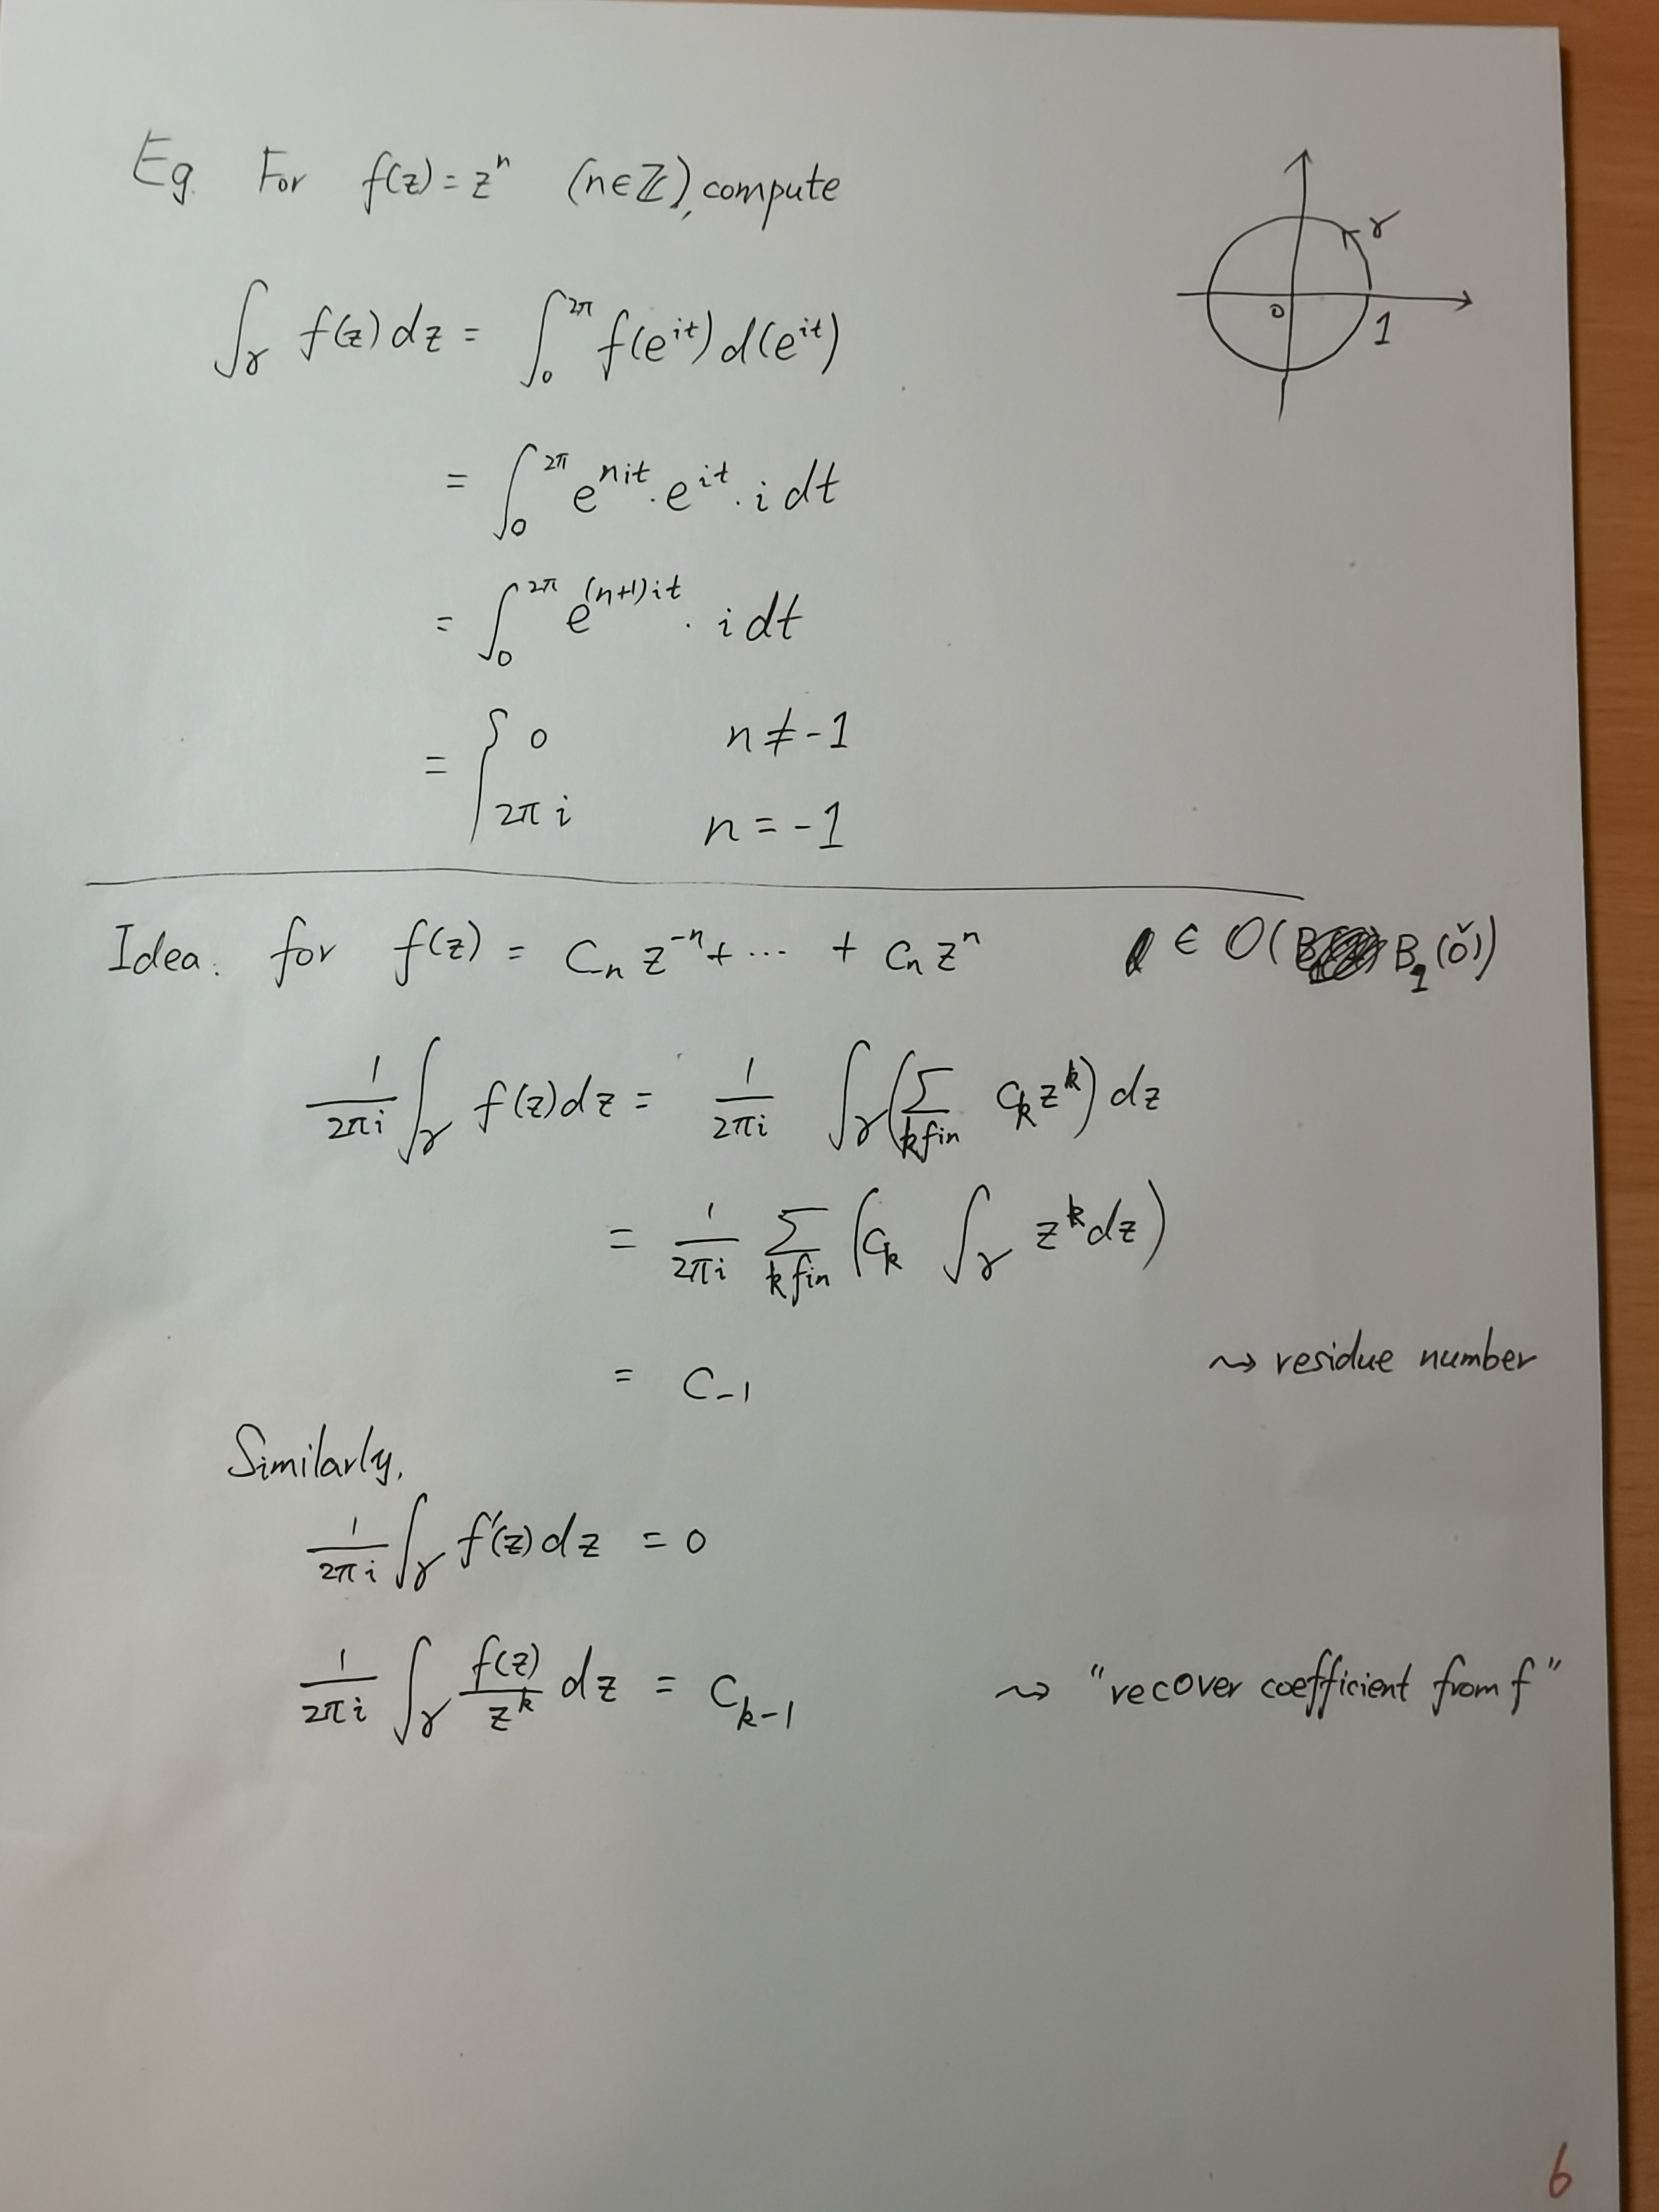 Eg. For f(z) = zⁿ (n∈ℤ), compute
γ
0
1
∫_γ f(z) dz = ∫_0^{2π} f(e^{it}) d(e^{it})
= ∫_0^{2π} e^{nit} · e^{it} · i dt
= ∫_0^{2π} e^{(n+1)it} · i dt
= { 0 n ≠ -1
2π i n = -1
Idea: for f(z) = C_n z^{-n} + ··· + C_n z^n ∈ O( B_1(0̌))
\frac{1}{2πi} ∫_γ f(z) dz = \frac{1}{2πi} ∫_γ (∑_{k fin} C_k z^k) dz
= \frac{1}{2πi} ∑_{k fin} (C_k ∫_γ z^k dz)
= C_{-1} ⇝ residue number
Similarly,
\frac{1}{2πi} ∫_γ f'(z) dz = 0
\frac{1}{2πi} ∫_γ \frac{f(z)}{z^k} dz = C_{k-1} ⇝ "recover coefficient from f"
6